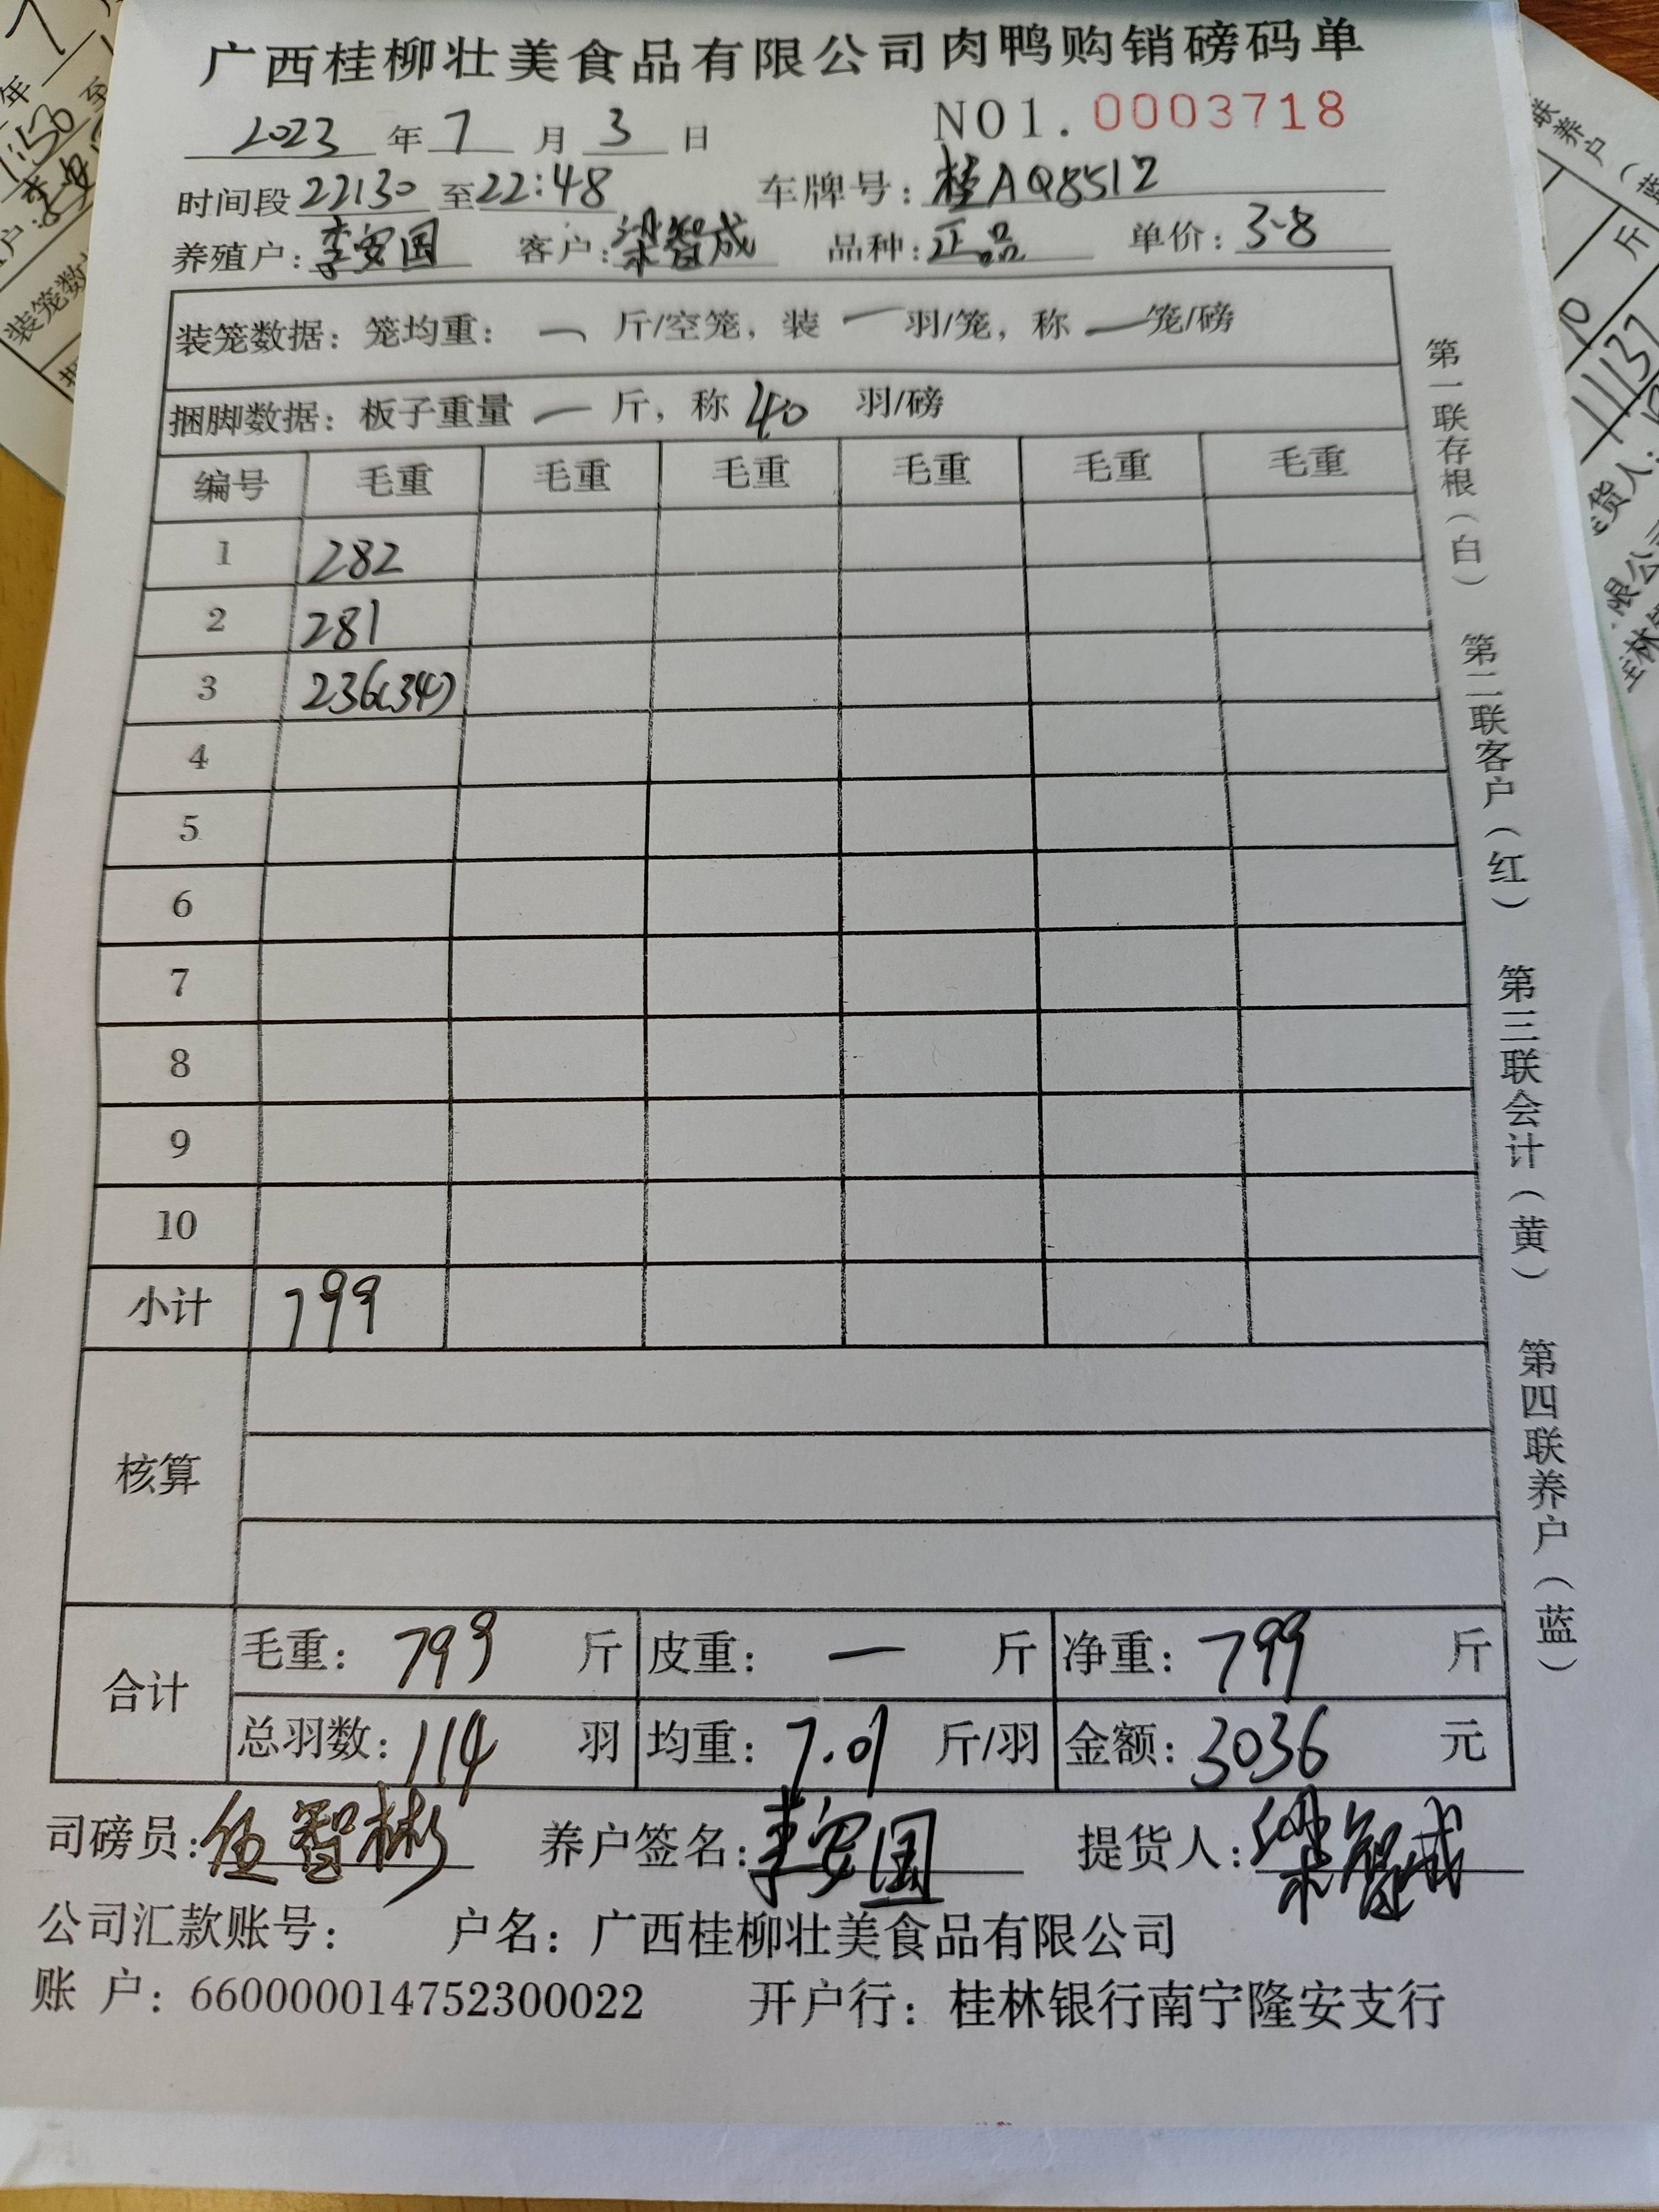 广西桂柳壮美食品有限公司肉鸭购销磅码单
2023 年 7 月 3 日 NO1. 0003718
时间段 22:30 至 22:48 车牌号: 桂AQ8512
养殖户: 李安国 客户: 梁智成 品种: 正品 单价: 3.8
装笼数据: 笼均重: 一 斤/空笼, 装 一 羽/笼, 称 一 笼/磅
捆脚数据: 板子重量 一 斤, 称 40 羽/磅
编号 毛重 毛重 毛重 毛重 毛重 毛重
1 282
2 281
3 236(34)
4
5
6
7
8
9
10
小计 799
核算
合计 毛重: 799 斤 皮重: 一 斤 净重: 799 斤
总羽数: 114 羽 均重: 7.01 斤/羽 金额: 3036 元
司磅员: 伍智彬 养户签名: 李安国 提货人: 梁智成
公司汇款账号: 户名: 广西桂柳壮美食品有限公司
账 户: 660000014752300022 开户行: 桂林银行南宁隆安支行
第一联存根(白) 第二联客户(红) 第三联会计(黄) 第四联养户(蓝)